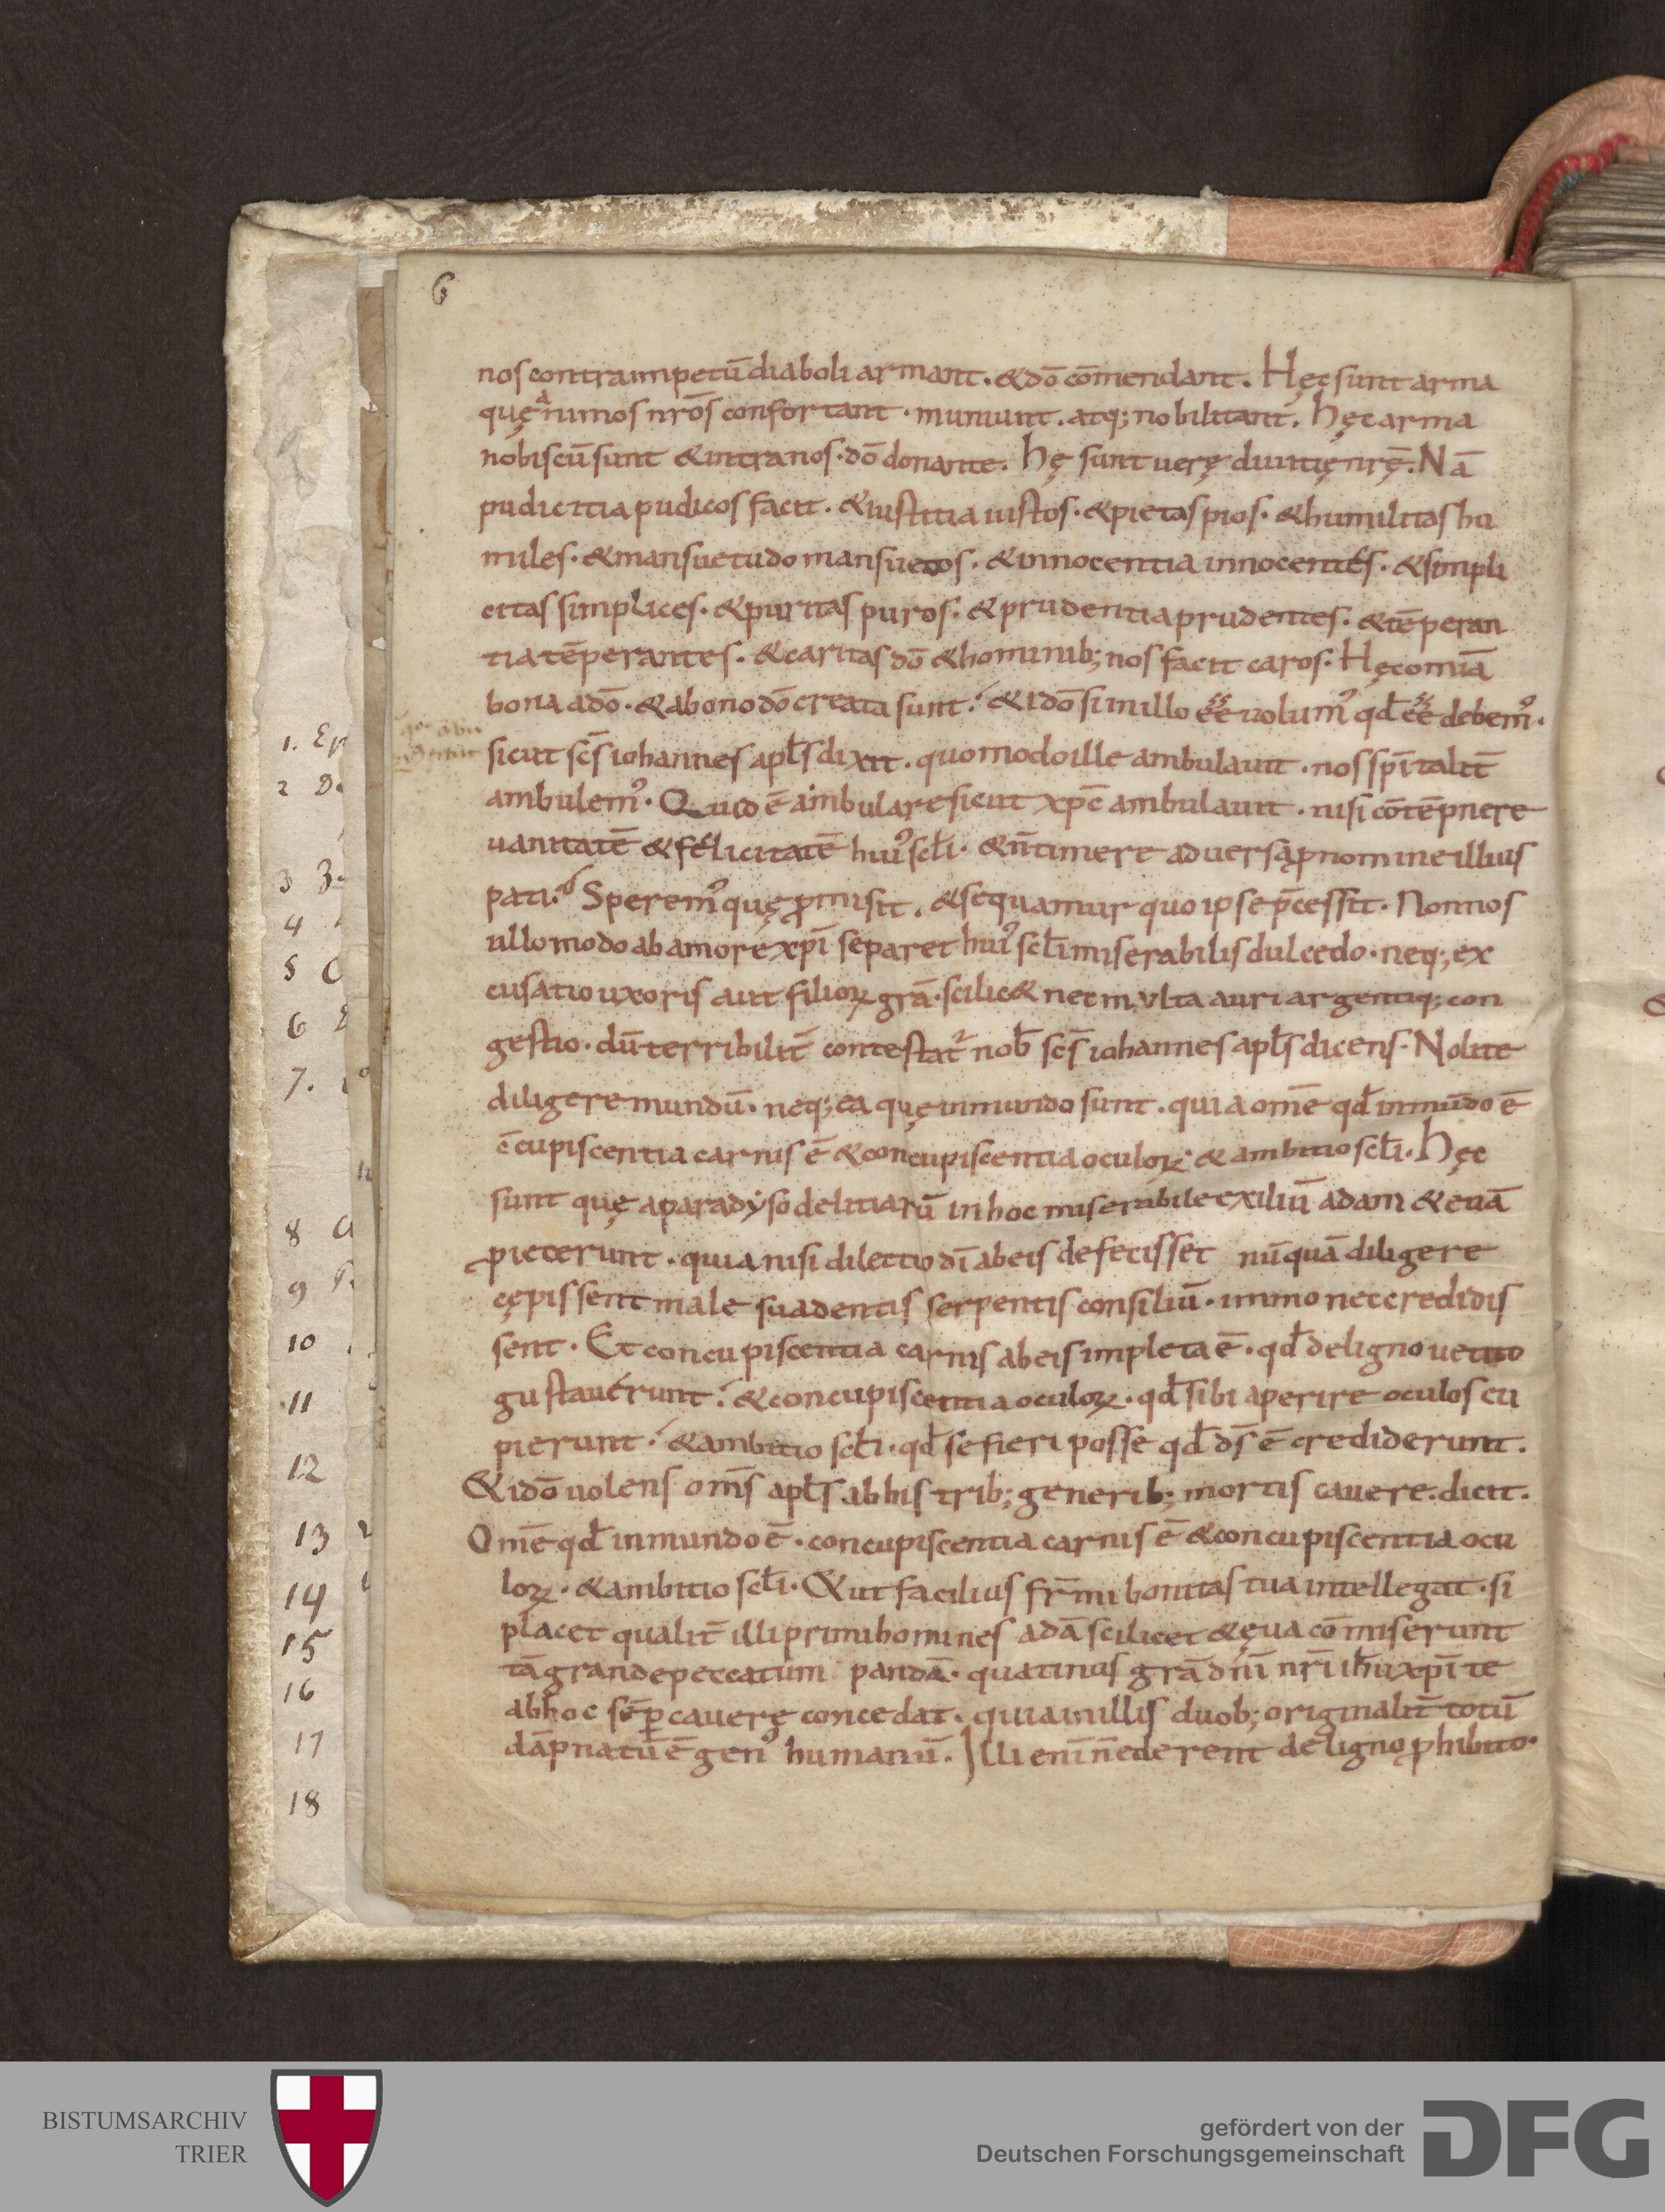 6
nos contra impetū diaboli armant. & dō cōmendant. Hęc sunt arma
quę animos nr̄os confortant. muniunt. atq; nobilitant. hęc arma
nobiscū sunt & intra nos. dō donante. hę sunt uerę diuitię nr̄ę. Nā
pudicitia pudicos facit. & iustitia iustos. & pietas pios. & humilitas hu
miles. & mansuetudo mansuetos. & innocentia innocentes. & simpli
citas simplices. & puritas puros. & prudentia prudentes. & tēperan
tia tēperantes. & caritas dō & hominib; nos facit caros. Hęc omīa
bona a dō. & a bono dō creata sunt. & idō si in illo ēē uolum' qd̄ ēē debem'.
sicut sc̄s iohannes apl̄s dixit. quomodo ille ambulauit. nos spītalit̄
ambulem'. Quid ē ambulare sicut xp̄c ambulauit. nisi cōtēpnere
uanitatē & felicitatē hui' scl̄i. & n̄ timere aduersa ꝓ nomine illius
pati. Sperem' quę ꝓmisit. & sequamur quo ipse p̄cessit. Non nos
ullo modo ab amore xp̄i separet hui' scl̄i miserabilis dulcedo. neq; ex
cusatio uxoris aut filioꝝ grā. scilic& nec multa auri argentiq; con
gestio. dū terribilit̄ contestat' nob̄ sc̄s iohannes apl̄s dicens. Nolite
diligere mundū. neq; ea quę in mundo sunt. quia om̄e qd̄ in mūdo ē
ēcupiscentia carnis ē & concupiscentia oculoꝝ & ambitio scl̄i. Hęc
sunt quę a paradẏso delitiarū in hoc miserabile exiliū adam & euā
ꝓiecerunt. quia nisi dilectio dī ab eis defecisset nūquā diligere
cępissent male suadentis serpentis consiliū. immo nec credidis
sent. Et concupiscentia carnis ab eis impleta ē. qd̄ de ligno uetito
gustauerunt. & concupiscentia oculoꝝ. qd̄ sibi aperire oculos cu
pierunt. & ambitio scl̄i. qd̄ se fieri posse qd̄ ds̄ ē crediderunt.
& idō uolens om̄s apl̄s ab his trib; generib; mortis cauere. dicit.
Om̄e qd̄ in mundo ē. concupiscentia carnis ē & concupiscentia ocu
loꝝ. & ambitio scl̄i. & ut facilius fr̄ mi bonitas tua intellegat. si
placet qualit̄ illi primi homines adā scilicet & ęua cōmiserunt
tā grande peccatum pandā. quatinus grā dn̄i nr̄i ih̄u xp̄i te
ab hoc sēꝑ cauerę concedat. quia in illis duob; originalit̄ totū
dāpnatū ē gen' humanū. Illi enī n̄ ederent de ligno ꝓhibito.
1. Ep
2
3
4
5
6
7.
8
9
10
11
12
13
14
15
16
17
18
BISTUMSARCHIV
TRIER
gefördert von der
Deutschen Forschungsgemeinschaft
DFG